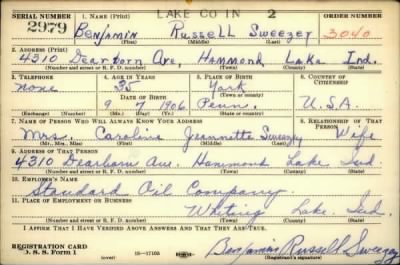 LAKE CO IN 2
SERIAL NUMBER 1. NAME (Print) ORDER NUMBER
2979 Benjamin Russell Sweezey 3040
(First) (Middle) (Last)
2. ADDRESS (Print)
4310 Dearborn Ave, Hammond, Lake Ind.
(Number and street or R. F. D. number) (Town) (County) (State)
3. TELEPHONE 4. AGE IN YEARS 5. PLACE OF BIRTH 6. COUNTRY OF CITIZENSHIP
none 35 York
DATE OF BIRTH (Town or county)
9 7 1906 Penn. U.S.A.
(Exchange) (Number) (Mo.) (Day) (Yr.) (State or country)
7. NAME OF PERSON WHO WILL ALWAYS KNOW YOUR ADDRESS 8. RELATIONSHIP OF THAT PERSON
Mrs. Caroline Jeannette Sweezey Wife
(Mr., Mrs., Miss) (First) (Middle) (Last)
9. ADDRESS OF THAT PERSON
4310 Dearborn Ave. Hammond Lake Ind.
(Number and street or R. F. D. number) (Town) (County) (State)
10. EMPLOYER'S NAME
Standard Oil Company.
11. PLACE OF EMPLOYMENT OR BUSINESS
Whiting Lake. Ind.
(Number and street or R. F. D. number) (Town) (County) (State)
I AFFIRM THAT I HAVE VERIFIED ABOVE ANSWERS AND THAT THEY ARE TRUE.
REGISTRATION CARD
D. S. S. Form 1 (over) 16—17105 Benjamin Russell Sweezey
(Registrant's signature)